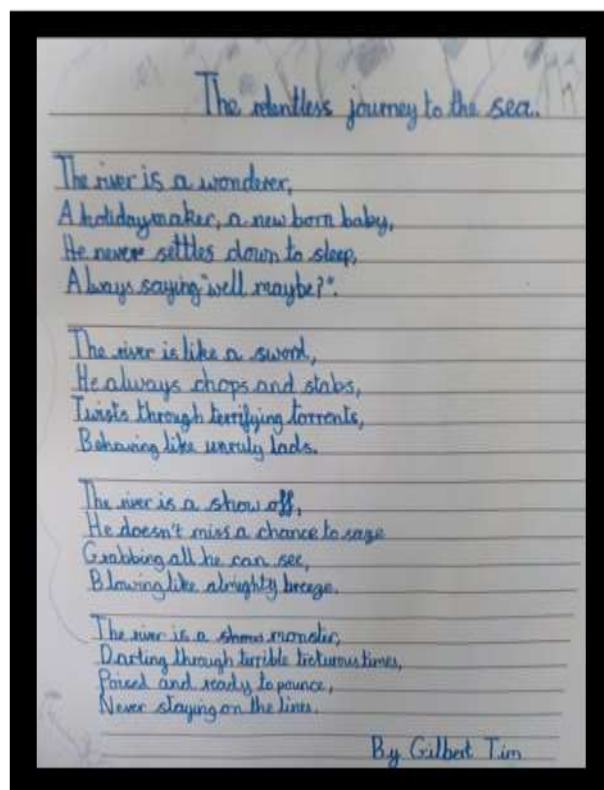 The relentless journey to the sea.
The river is a wonderer,
A holidaymaker, a new born baby,
He never settles down to sleep,
Always saying "well maybe?".
The river is like a sword,
He always chops and stabs,
Twists through terrifying torrents,
Behaving like unruly lads.
The river is a show off,
He doesn't miss a chance to
Grabbing all he can see,
Blowing like almighty breeze.
The river is a monster,
Darting through terrible times,
Poised and ready to pounce,
Never staying on the lines.
By Gilbert Tim